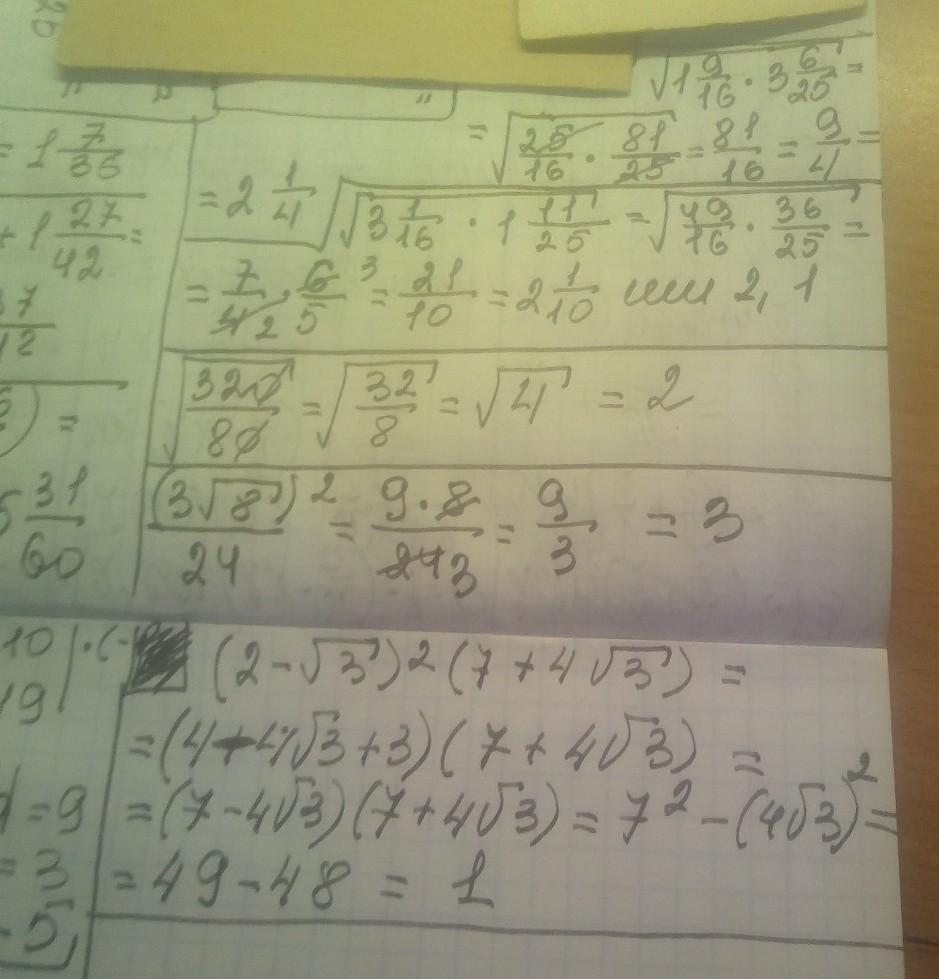 √1 9/16 · 3 6/25 =
= √25/16 · 81/25 = 81/16 = 9/4 =
= 2 1/4
√3 1/16 · 1 11/25 = √49/16 · 36/25 =
= 7/4 2 · 6/5 3 = 21/10 = 2 1/10 или 2,1
√320/80 = √32/8 = √4 = 2
(3√8)²/24 = 9·8/24 3 = 9/3 = 3
(2-√3)²(7+4√3) =
=(4-4√3+3)(7+4√3) =
=(7-4√3)(7+4√3) = 7²-(4√3)² =
= 49-48 = 1
= 1 7/36
+ 1 27/42 =
) =
31/60
10 ·(-
19
= 9
= 3